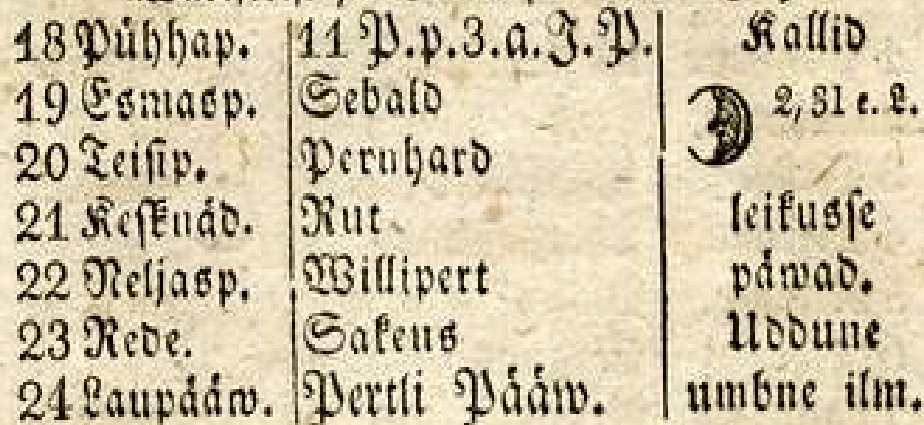 18 Pühhap. 11 P.p.3.a.J.P. Kallid
19 Esmasp. Sebald 2, 31 e. L.
20 Teisip. Pernhard
21 Kesknäd. Rut leikusse
22 Neljasp. Willipert päwad.
23 Rede. Sakeus Uddune
24 Laupääw. Pertli Pääw. umbne ilm.